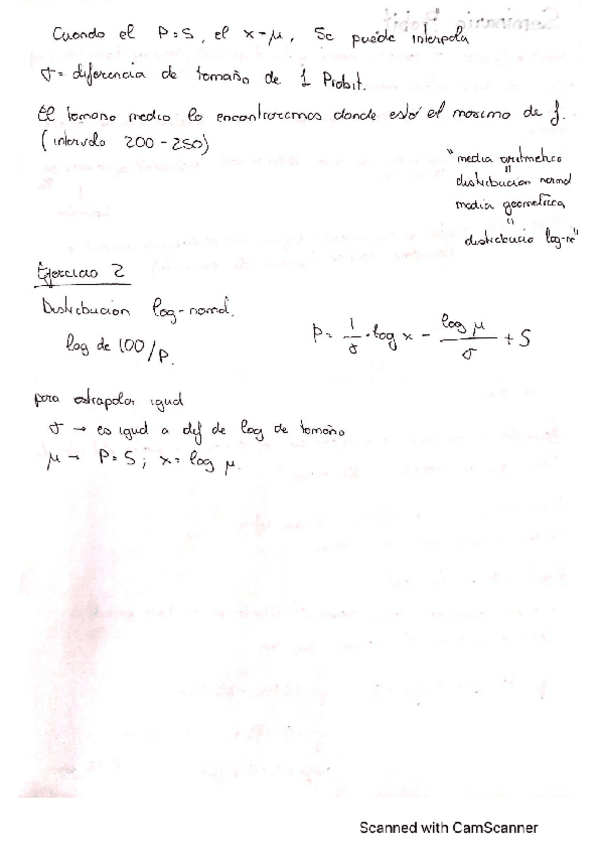 Cuando el P=5, el x=μ, Se puede interpola
σ= diferencia de tamaño de 1 Probit.
El tamaño medio lo encontraremos donde está el maximo de f.
( intervalo 200 - 250)
"media aritmetica
"
distribucion normal
media geometrica
"
distribucio log-n"
Ejercicio 2
Distribucion log-normal.
log de 100/P.
P= 1/σ · log x - log μ/σ + 5
para extrapolar igual
σ → es igual a dif de log de tamaño
μ → P=5; x= log μ.
Scanned with CamScanner